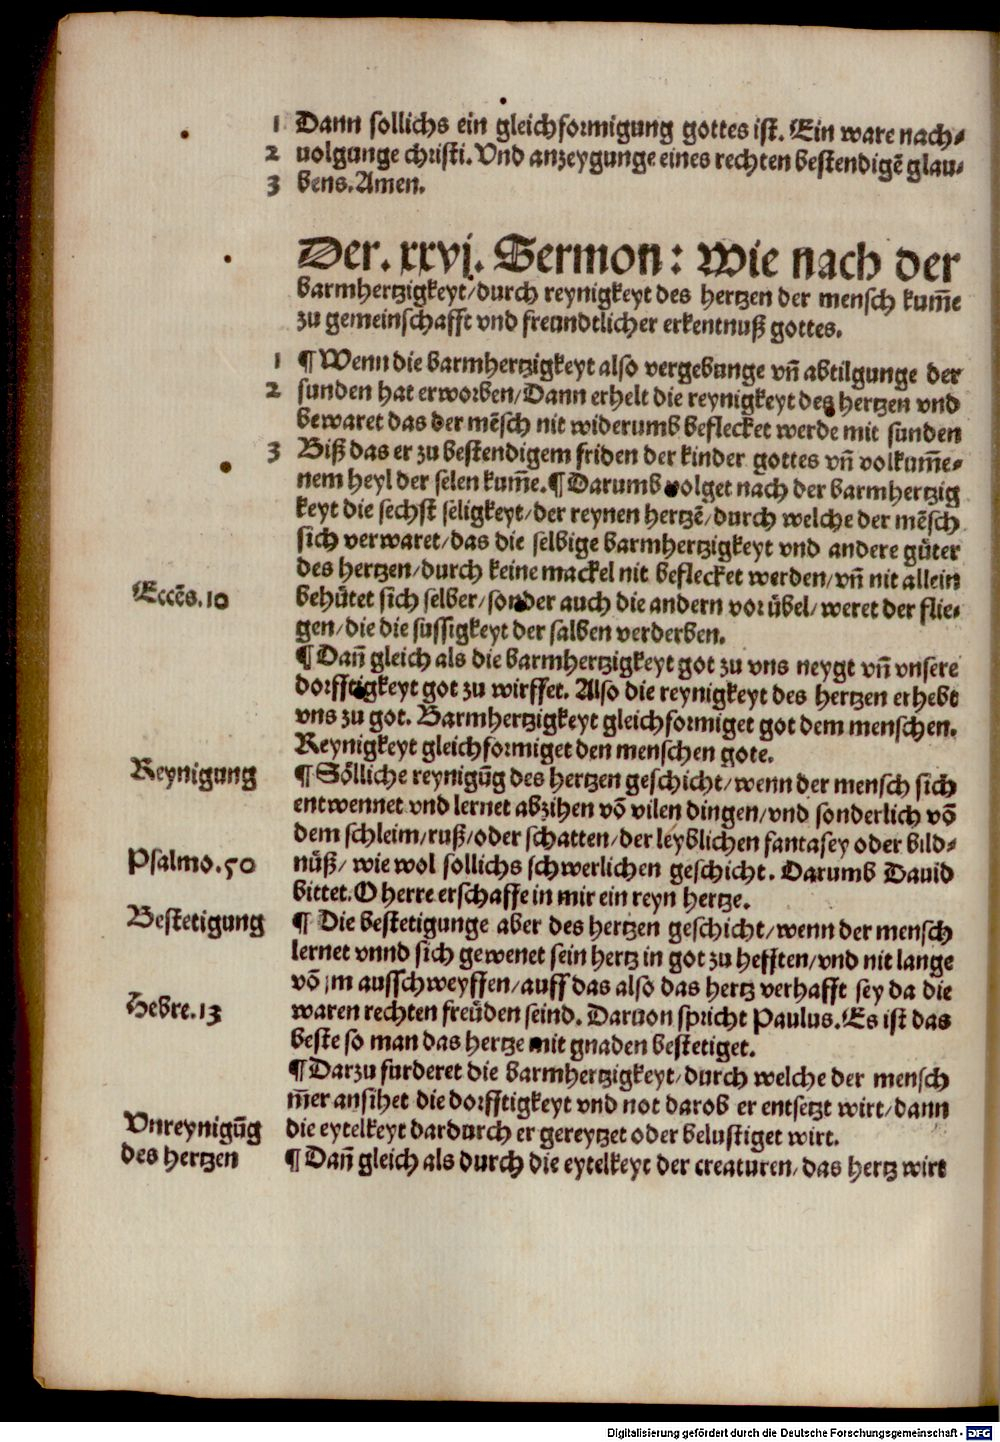 1 Dann sollichs ein gleichformigung gottes ist. Ein ware nach⸗
2 uolgunge christi. Vnd anzeygunge eines rechten bestendigẽ glau⸗
3 bens. Amen.
Der. xxvj. Sermon: Wie nach der
barmhertzigkeyt/durch reynigkeyt des hertzen der mensch kum̃e
zu gemeinschafft vnd freundtlicher erkentnuß gottes.
1 ¶ Wenn die barmhertzigkeyt also vergebunge vñ abtilgunge der
2 sunden hat erworben/Dann erhelt die reynigkeyt des hertzen vnd
bewaret das der mẽsch nit widerumb beflecket werde mit sunden
3 Biß das er zu bestendigem friden der kinder gottes vñ volkum̃e⸗
nem heyl der selen kum̃e. ¶ Darumb volget nach der barmhertzig
keyt die sechst seligkeyt/der reynen hertzẽ/durch welche der mẽsch
sich verwaret/das die selbige barmhertzigkeyt vnd andere guͤter
des hertzen/durch keine mackel nit beflecket werden/vñ nit allein
Eccẽs.10
behuͤtet sich selber/sonder auch die andern vor uͤbel/weret der flie⸗
gen/die die sussigkeyt der salben verderben.
¶ Dañ gleich als die barmhertzigkeyt got zu vns neygt vñ vnsere
dorfftigkeyt got zu wirffet. Also die reynigkeyt des hertzen erhebt
vns zu got. Barmhertzigkeyt gleichformiget got dem menschen.
Reynigkeyt gleichformiget den menschen gote.
Reynigung
¶ Soͤlliche reynigũg des hertzen geschicht/wenn der mensch sich
entwennet vnd lernet abzihen võ vilen dingen/vnd sonderlich võ
dem schleim/ruß/oder schatten/der leyblichen fantasey oder bild⸗
Psalmo.50
nuͤß/ wie wol sollichs schwerlichen geschicht. Darumb Dauid
bittet. O herre erschaffe in mir ein reyn hertze.
Bestetigung
¶ Die bestetigunge aber des hertzen geschicht/wenn der mensch
lernet vnnd sich gewenet sein hertz in got zu hefften/vnd nit lange
võ jm ausschweyffen/auff das also das hertz verhafft sey da die
Hebre.13
waren rechten freuͤden seind. Daruon spricht Paulus. Es ist das
beste so man das hertze mit gnaden bestetiget.
¶ Darzu furderet die barmhertzigkeyt/durch welche der mensch
m̃er ansihet die dorfftigkeyt vnd not darob er entsetzt wirt/dann
Vnreynigũg
die eytelkeyt dardurch er gereytzet oder belustiget wirt.
des hertzen
¶ Dañ gleich als durch die eytelkeyt der creaturen/das hertz wirt
Digitalisierung gefördert durch die Deutsche Forschungsgemeinschaft - DFG